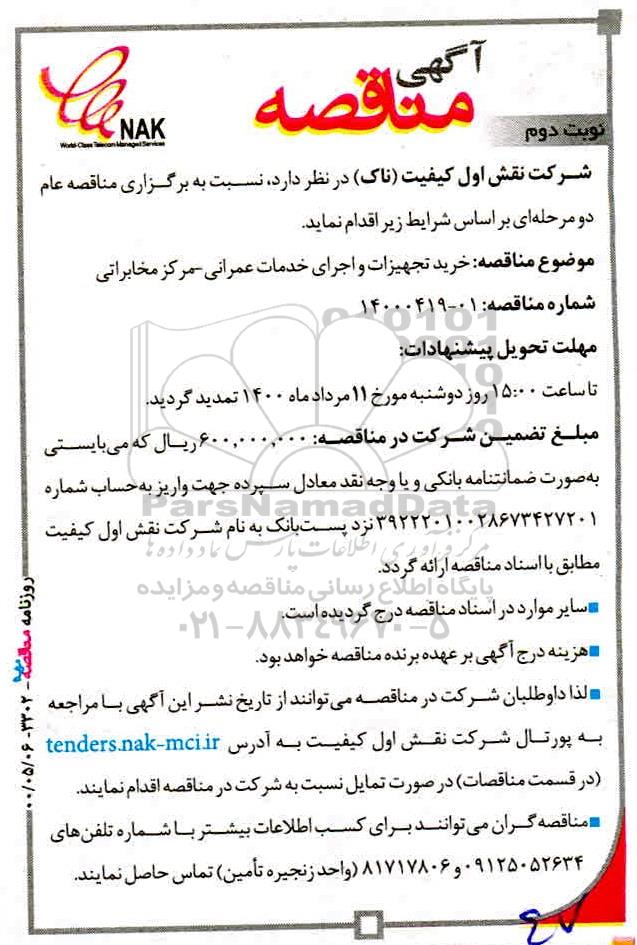 آگهی
مناقصه
NAK
World-Class Telecom Managed Services
نوبت دوم
شرکت نقش اول کیفیت (ناک) در نظر دارد، نسبت به برگزاری مناقصه عام
دو مرحله‌ای بر اساس شرایط زیر اقدام نماید.
موضوع مناقصه: خرید تجهیزات و اجرای خدمات عمرانی-مرکز مخابراتی
شماره مناقصه: ۰۱-۱۴۰۰۰۴۱۹
مهلت تحویل پیشنهادات:
تا ساعت ۱۵:۰۰ روز دوشنبه مورخ ۱۱ مرداد ماه ۱۴۰۰ تمدید گردید.
مبلغ تضمین شرکت در مناقصه: ۶۰۰,۰۰۰,۰۰۰ ریال که می‌بایستی
به‌صورت ضمانتنامه بانکی و یا وجه نقد معادل سپرده جهت واریز به‌حساب شماره
۳۹۲۲۲۰۱۰۰۲۸۶۷۳۴۲۷۲۰۱ نزد پست‌بانک به نام شرکت نقش اول کیفیت
مطابق با اسناد مناقصه ارائه گردد.
سایر موارد در اسناد مناقصه درج گردیده است.
هزینه درج آگهی بر عهده برنده مناقصه خواهد بود.
لذا داوطلبان شرکت در مناقصه می‌توانند از تاریخ نشر این آگهی با مراجعه
به پورتال شرکت نقش اول کیفیت به آدرس tenders.nak-mci.ir
(در قسمت مناقصات) در صورت تمایل نسبت به شرکت در مناقصه اقدام نمایند.
مناقصه‌گران می‌توانند برای کسب اطلاعات بیشتر با شماره تلفن‌های
۰۹۱۲۵۰۵۲۶۳۴ و ۸۱۷۱۷۸۰۶ (واحد زنجیره تأمین) تماس حاصل نمایند.
روزنامه مناقصه مزایده - ۳۳۰۲ - ۰۰/۰۵/۰۶
ParsNamadData
مرکز فرآوری اطلاعات پارس نماد داده‌ها
پایگاه اطلاع رسانی مناقصه و مزایده
۰۲۱-۸۸۳۴۹۶۷۰-۵